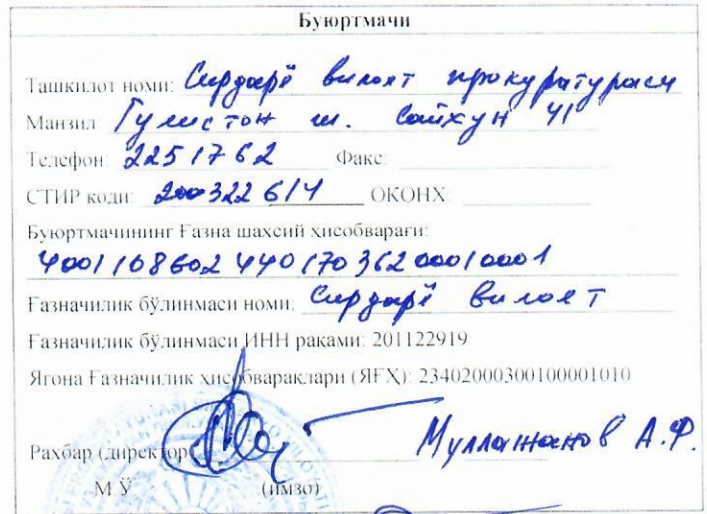 Буюртмачи
Ташкилот номи: Сирдарё вилоят прокуратураси
Манзил: Гулистон ш. Сайхун 41
Телефон: 2251762 Факс:
СТИР коди: 200322614 ОКОНХ:
Буюртмачининг Ғазна шахсий ҳисобварағи:
400110860244017036200010001
Ғазначилик бўлинмаси номи: Сирдарё вилоят
Ғазначилик бўлинмаси ИНН рақами: 201122919
Ягона Ғазначилик ҳисобварақлари (ЯҒҲ): 23402000300100001010
Рахбар (директор) Муллажанов А.Ф.
М.Ў (имзо)